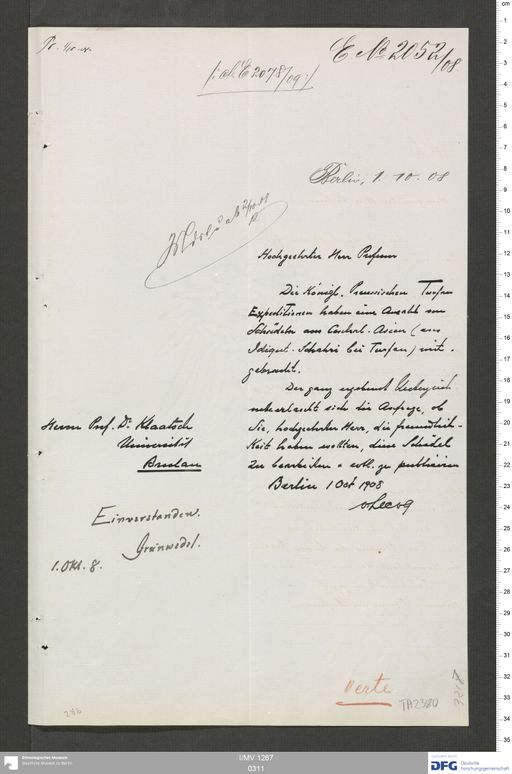 E. № 2052/08
/: cf. E 2078/09 :/
Berlin, 1. 10. 08
Hochgeehrter Herr Professor
Die Königl. Preussischen Turfan
Expeditionen haben eine Anzahl von
Schädeln aus Central-Asien (aus
Idiqut-Schahri bei Turfan) mit-
gebracht.
Der ganz ergebenst Unterzeich
nete erlaubt sich die Anfrage, ob
Sie, hochgeehrter Herr, die freundlich-
keit haben wollten, diese Schädel
zu bearbeiten u evtl. zu publicieren
Berlin 1 Oct 1908
vLecoq
Herrn Prof. Dr. Klaatsch
Universität
Breslau
Einverstanden.
Grünwedel.
1. Okt. 8.
Acrte
TA2380
3217
286
Ethnologisches Museum
Staatliche Museen zu Berlin
I/MV 1267
0311
DFG
Deutsche
Forschungsgemeinschaft